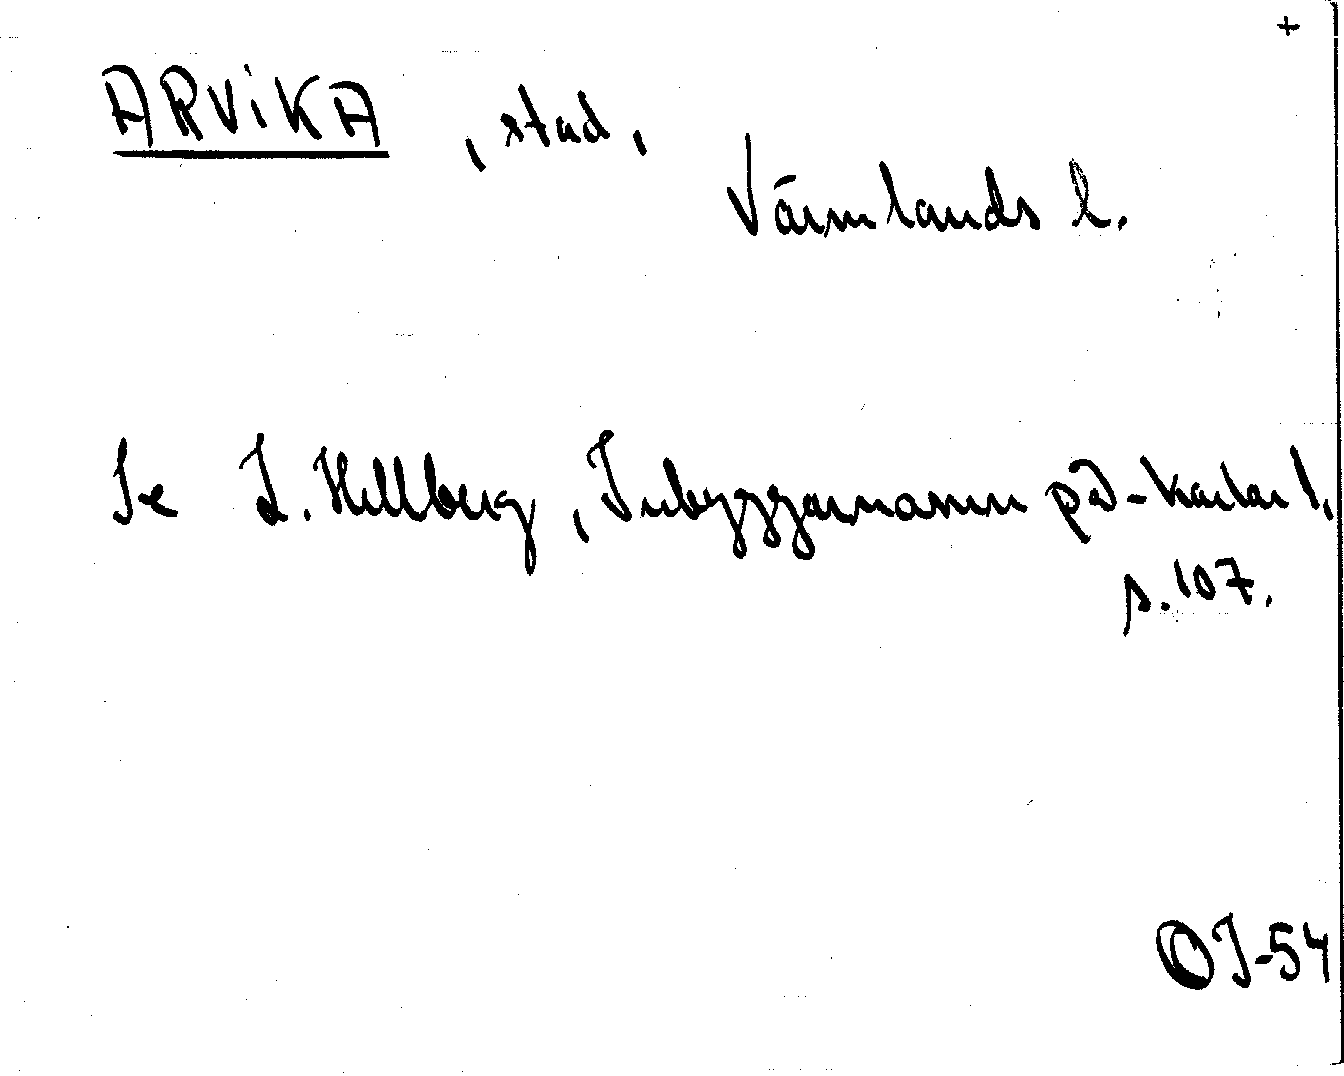 +
ARVIKA, stad,
Värmlands l.
Se L. Hellberg, Inbyggarnamn på -karlar 1,
s. 107.
OJ-54